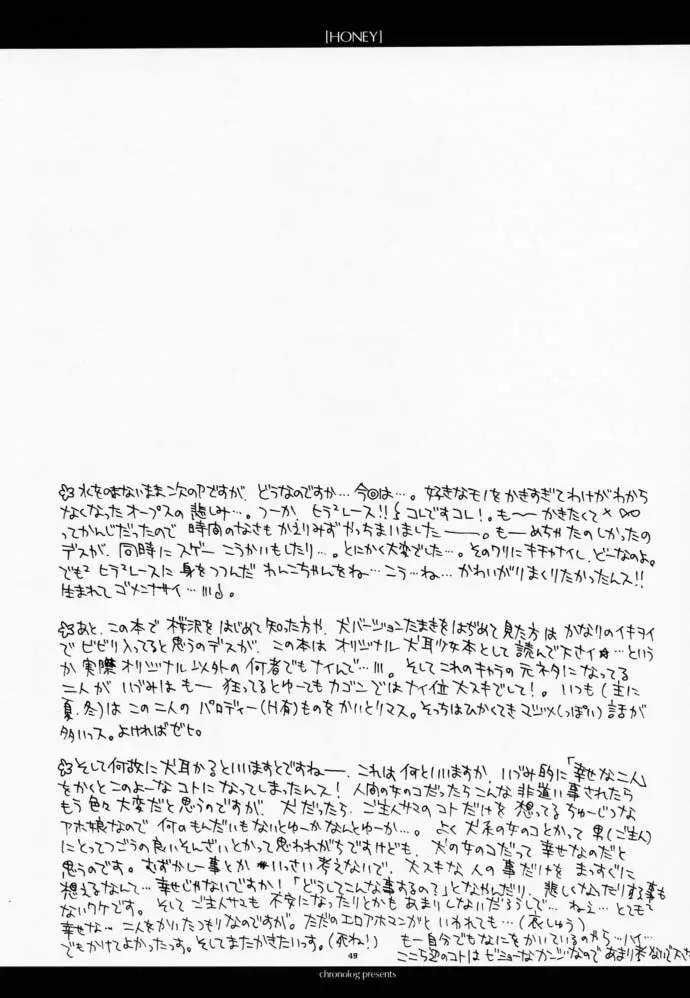 [HONEY]
水をのまないまま次のPですが、どうなのですか…今回は…。好きなモノをかきすぎてわけがわから
なくなったオープスの悲しみ…。つーか、ヒラ²レース!! コレですコレ!。も〜〜かきたくて
ってかんじだったので 時間のなさもかえりみずやっちまいましたーー。もーめちゃたのしかったの
デスが、同時にスゲー こうかいもしたり…。とにかく大変でした…。そのワリにキチャナイし、どーなのよ。
でも² ヒラ²レースに身をつつんだ わんこちゃんをね…こう…ね… かわいがりまくりたかったんス!!
生まれて ゴメンナサイ…
あと、この本で 桜沢をはじめて知った方や、犬バージョンたまきをはぢめて見た方は かなりのイキヲイ
で ビビリ入ってると思うのデスが、この本は オリジナル 犬耳少女本として 読んで下さイ☆…という
か 実際 オリジナル 以外の 何者でもナイんで…。そして これのキャラの 元ネタになってる
二人が いづみは もー 狂ってるとゆーてもカゴンではナイ位 大スキでして!。いつも(主に
夏、冬)は この二人の パロディー(H有)ものを かいとりマス。そっちはひかくてきマジメ(っぽい)話が
多いっス。よければゼヒ。
そして何故に 犬耳かるといいますとですねー、これは 何といいますか、いづみ的に「幸せな二人」
をかくと このよーな コトに なってしまったんス! 人間の女のコだったら こんな 非道い事されたら
もう 色々 大変だと思うのですが、犬だったら、ご主人サマのコトだけを 想ってる ちゅーじつな
アホ娘なので 何のもんだいもないとゆーかなんとゆーか…。よく 犬系の女のコとかって 男(ご主人)
にとってつごうの良いそんざいとかって思われがちですけども、犬の女のコだって 幸せなのだと
思うのです。むずかしー事とか いっさい考えないで、大スキな 人の 事だけを まっすぐに
想えるなんて…幸せじゃないですか!「どうしてこんな事するの?」となやんだり、悲しくなったりする事も
ないワケです。そして ご主人サマも 不安になったりとかも あまりしないだろうしで… ねえ… とても
幸せな… 二人をかいたつもりなのですが。ただのエロアホマンガと いわれても…(衰しゅう)
でもかけてよかったっス。そしてまたかきたいっス。(死ね!) もー自分でもなにをかいているのやら…ハイ…
ここら辺のコトは ビミョーな なので あまり考ないで
49
chronolog presents